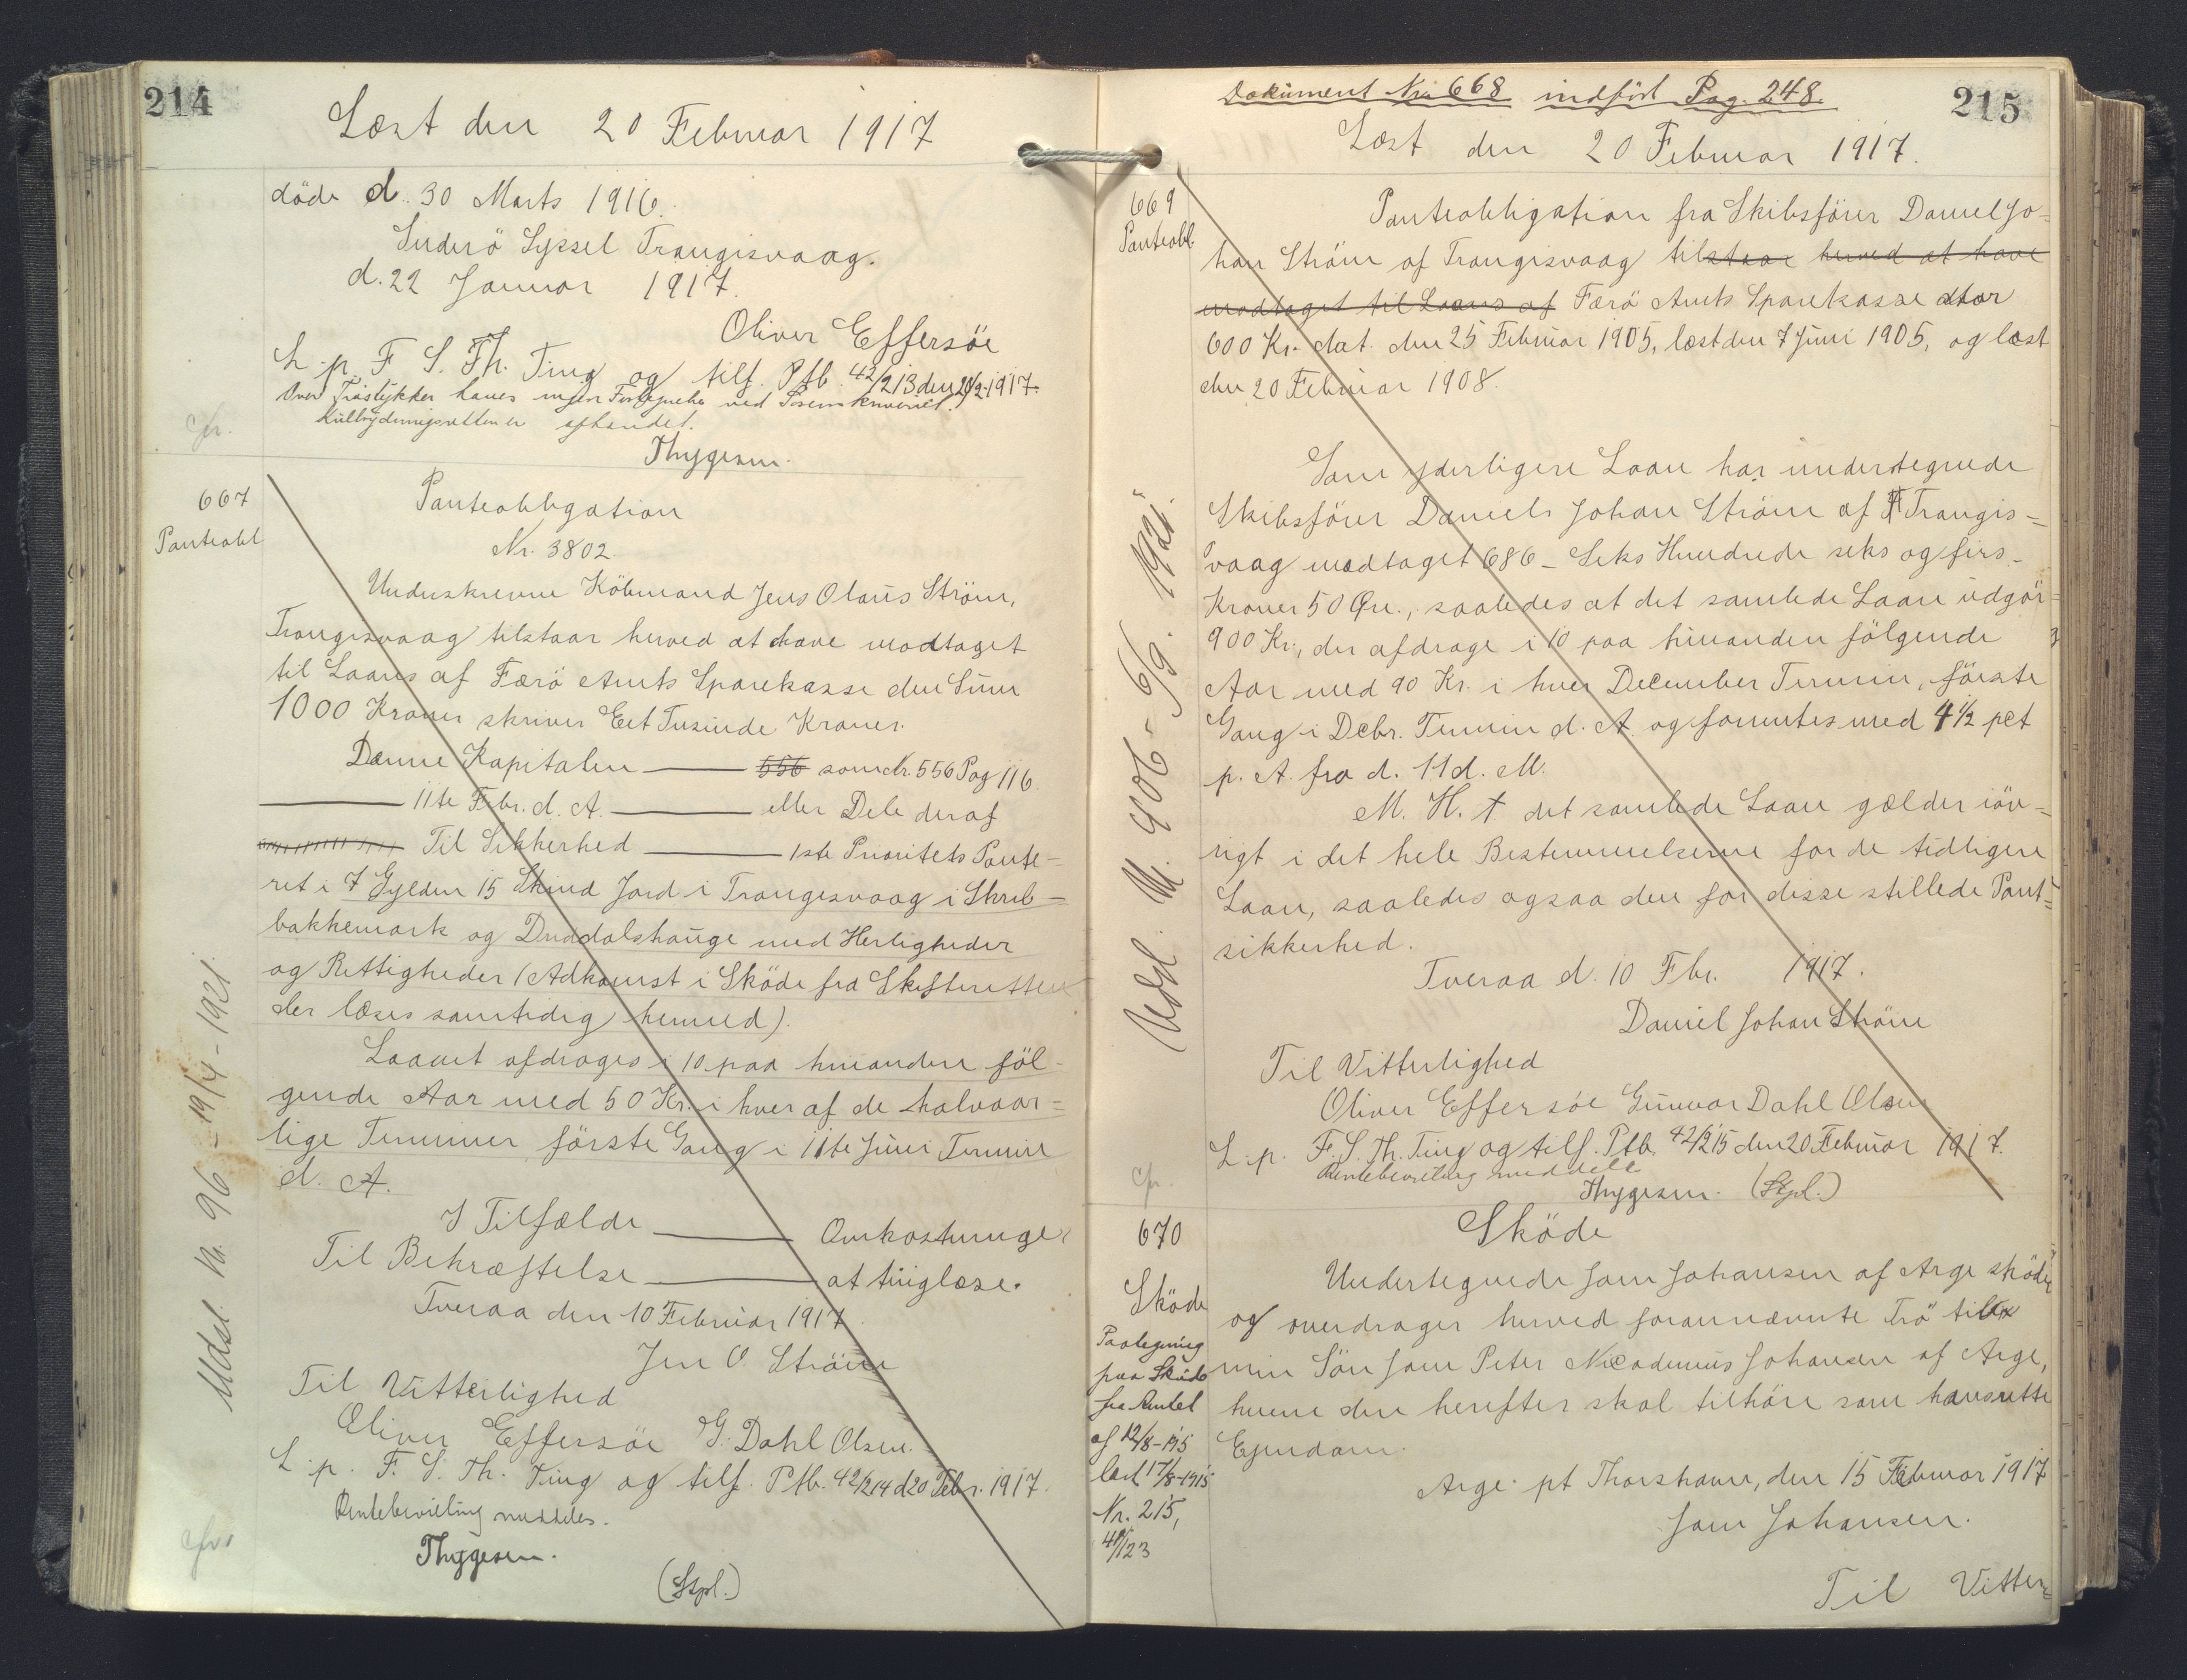 214
Læst den 20 Februar 1917
døde d. 30 Marts 1916.
Suderö Syssel Trangisvaag.
d. 22 Januar 1917.
Oliver Effersöe
L. p. F. S. Th. Ting og tilf. Ptb. 42/213 den 20/2-1917.
Over Træstykker haves ingen
Kulbrydningsretten er afhændet.
Thygesen.
cfr.
667
Panteobl
Panteobligation
Nr. 3802
Underskrevne Köbmand Jens Olaus Ström,
Trangisvaag tilstaar herved at have modtaget
til Laans af Færö Amts Sparekasse den Sum
1000 Kroner skriver Eet Tusinde Kroner.
Denne Kapitalen — 556 som Nr. 556 Pag 116.
— 11te Fbr. d. A. — eller Dele deraf
Til Sikkerhed — 1ste Prioritets Pante-
ret i 7 Gylden 15 Skind Jord i Trangesvaag i Skrub-
bakkemark og Duddalshauge med Herligheder
og Rettigheder (Adkomst i Sköde fra Skifteretten
der læses samtidig hermed).
Laanet afdrages i 10 paa hinanden föl-
gende Aar med 50 Kr. i hver af de halvaar=
lige Terminer förste Gang i 11te Juni Termin
d. A.
I Tilfælde — Omkostninger
Til Bekræftelse — at tinglæse.
Tveraa den 10 Februar 1917
Jens O. Ström
Til Vitterlighed
Oliver Effersöe G. Dahl Olsen.
L. p. F. S. Th. Ting og tilf. Ptb. 42/214 d 20 Febr. 1917.
Rentebevilling meddeles.
Thygesen.
(Stpl.)
cfr.
Udsl. Nr. 96 - 19/4 - 1921
Dokument Nr. 668 indført Pag. 248.
215
Læst den 20 Februar 1917.
669
Panteobl.
Panteobligation fra Skibsförer Daniel Jo=
han Ström af Trangisvaag tilstaar herved at have
modtaget til Laans af Færö Amts Sparekasse stor
600 Kr. dat. den 25 Februar 1905, læst den 7 Juni 1905, og læst
den 20 Februar 1908.
Som yderligere Laan har undertegnede
Skibsförer Daniels Johan Ström af Trangis=
vaag modtaget 686 - Seks Hundrede seks og firs -
Kroner 50 Øre., saaledes at det samlede Laan udgör
900 Kr., der afdrage i 10 paa hinanden fölgende
Aar med 90 Kr. i hver December Termin, förste
Gang i Decbr. Termin d. A. og forrentes med 4 1/2 pct
p. A. fra d. 11 d. M.
M. H. t det samlede Laan gælder iöv=
rigt i det hele Bestemmelserne for de tidligere
Laan, saaledes ogsaa den for disse stillede Pant=
sikkerhed.
Tveraa d. 10 Fbr. 1917.
Daniel Johan Ström
Til Vitterlighed
Oliver Effersöe Gunnar Dahl Olsen
L. p. F. S. Th. Ting og tilf. Ptb. 42/215 den 20 Februar 1917.
Rentebevilling meddelt
Thygesen. (Stpl.)
cfr.
670
Sköde
Sköde
Undertegnede Joen Johansen af Arge sköder
og overdrager herved forannævnte Trö til
min Sön Joen Peter Nicodemus Johansen af Arge,
hvem den herefter skal tilhöre som hans rette
Ejendom.
Paategning
paa Sköde
fra Amtet
af 12/8-1915
læst 17/8-1915
Nr. 215,
41/123
Arge pt Thorshavn, den 15 Februar 1917
Joen Johansen.
Til Vitter=